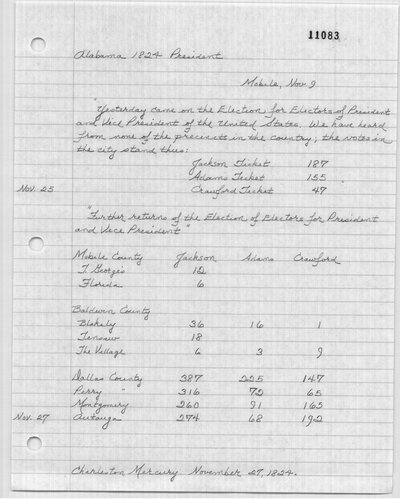 11083
Alabama 1824 President
Mobile, Nov. 9
"Yesterday came on the Election for Electors of President
and Vice President of the United States. We have heard
from none of the precincts in the country; the votes in
the city stand thus:
Jackson Ticket 187
Adams Ticket 155
Nov. 25 Crawford Ticket 47
"Further returns of the Election of Electors for President
and Vice President"
Mobile County Jackson Adams Crawford
T. Georges 12
Florida 6
Baldwin County
Blakely 36 16 1
Tensaw 18
The Village 6 3 9
Dallas County 387 225 147
Perry " 316 72 65
Montgomery 260 91 165
Nov. 27 Autauga 274 68 192
Charleston Mercury November 27, 1824.